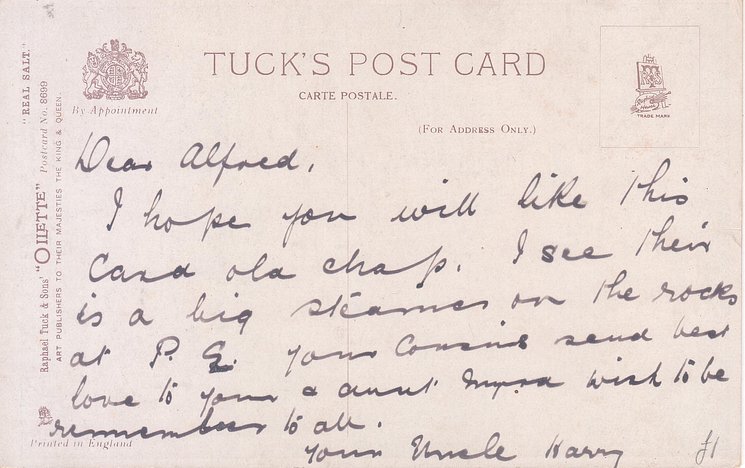 TUCK'S POST CARD
CARTE POSTALE.
(FOR ADDRESS ONLY.)
By Appointment
TRADE MARK
"REAL SALT."
Raphael Tuck & Sons' "OILETTE" Postcard No. 8699
ART PUBLISHERS TO THEIR MAJESTIES THE KING & QUEEN.
Printed in England
Dear Alfred,
I hope you will like this
Card old chap. I see their
is a big steamer on the rocks
at P. E. your Cousins send best
love to your & aunt Myra wish to be
remember to all.
your Uncle Harry
£1